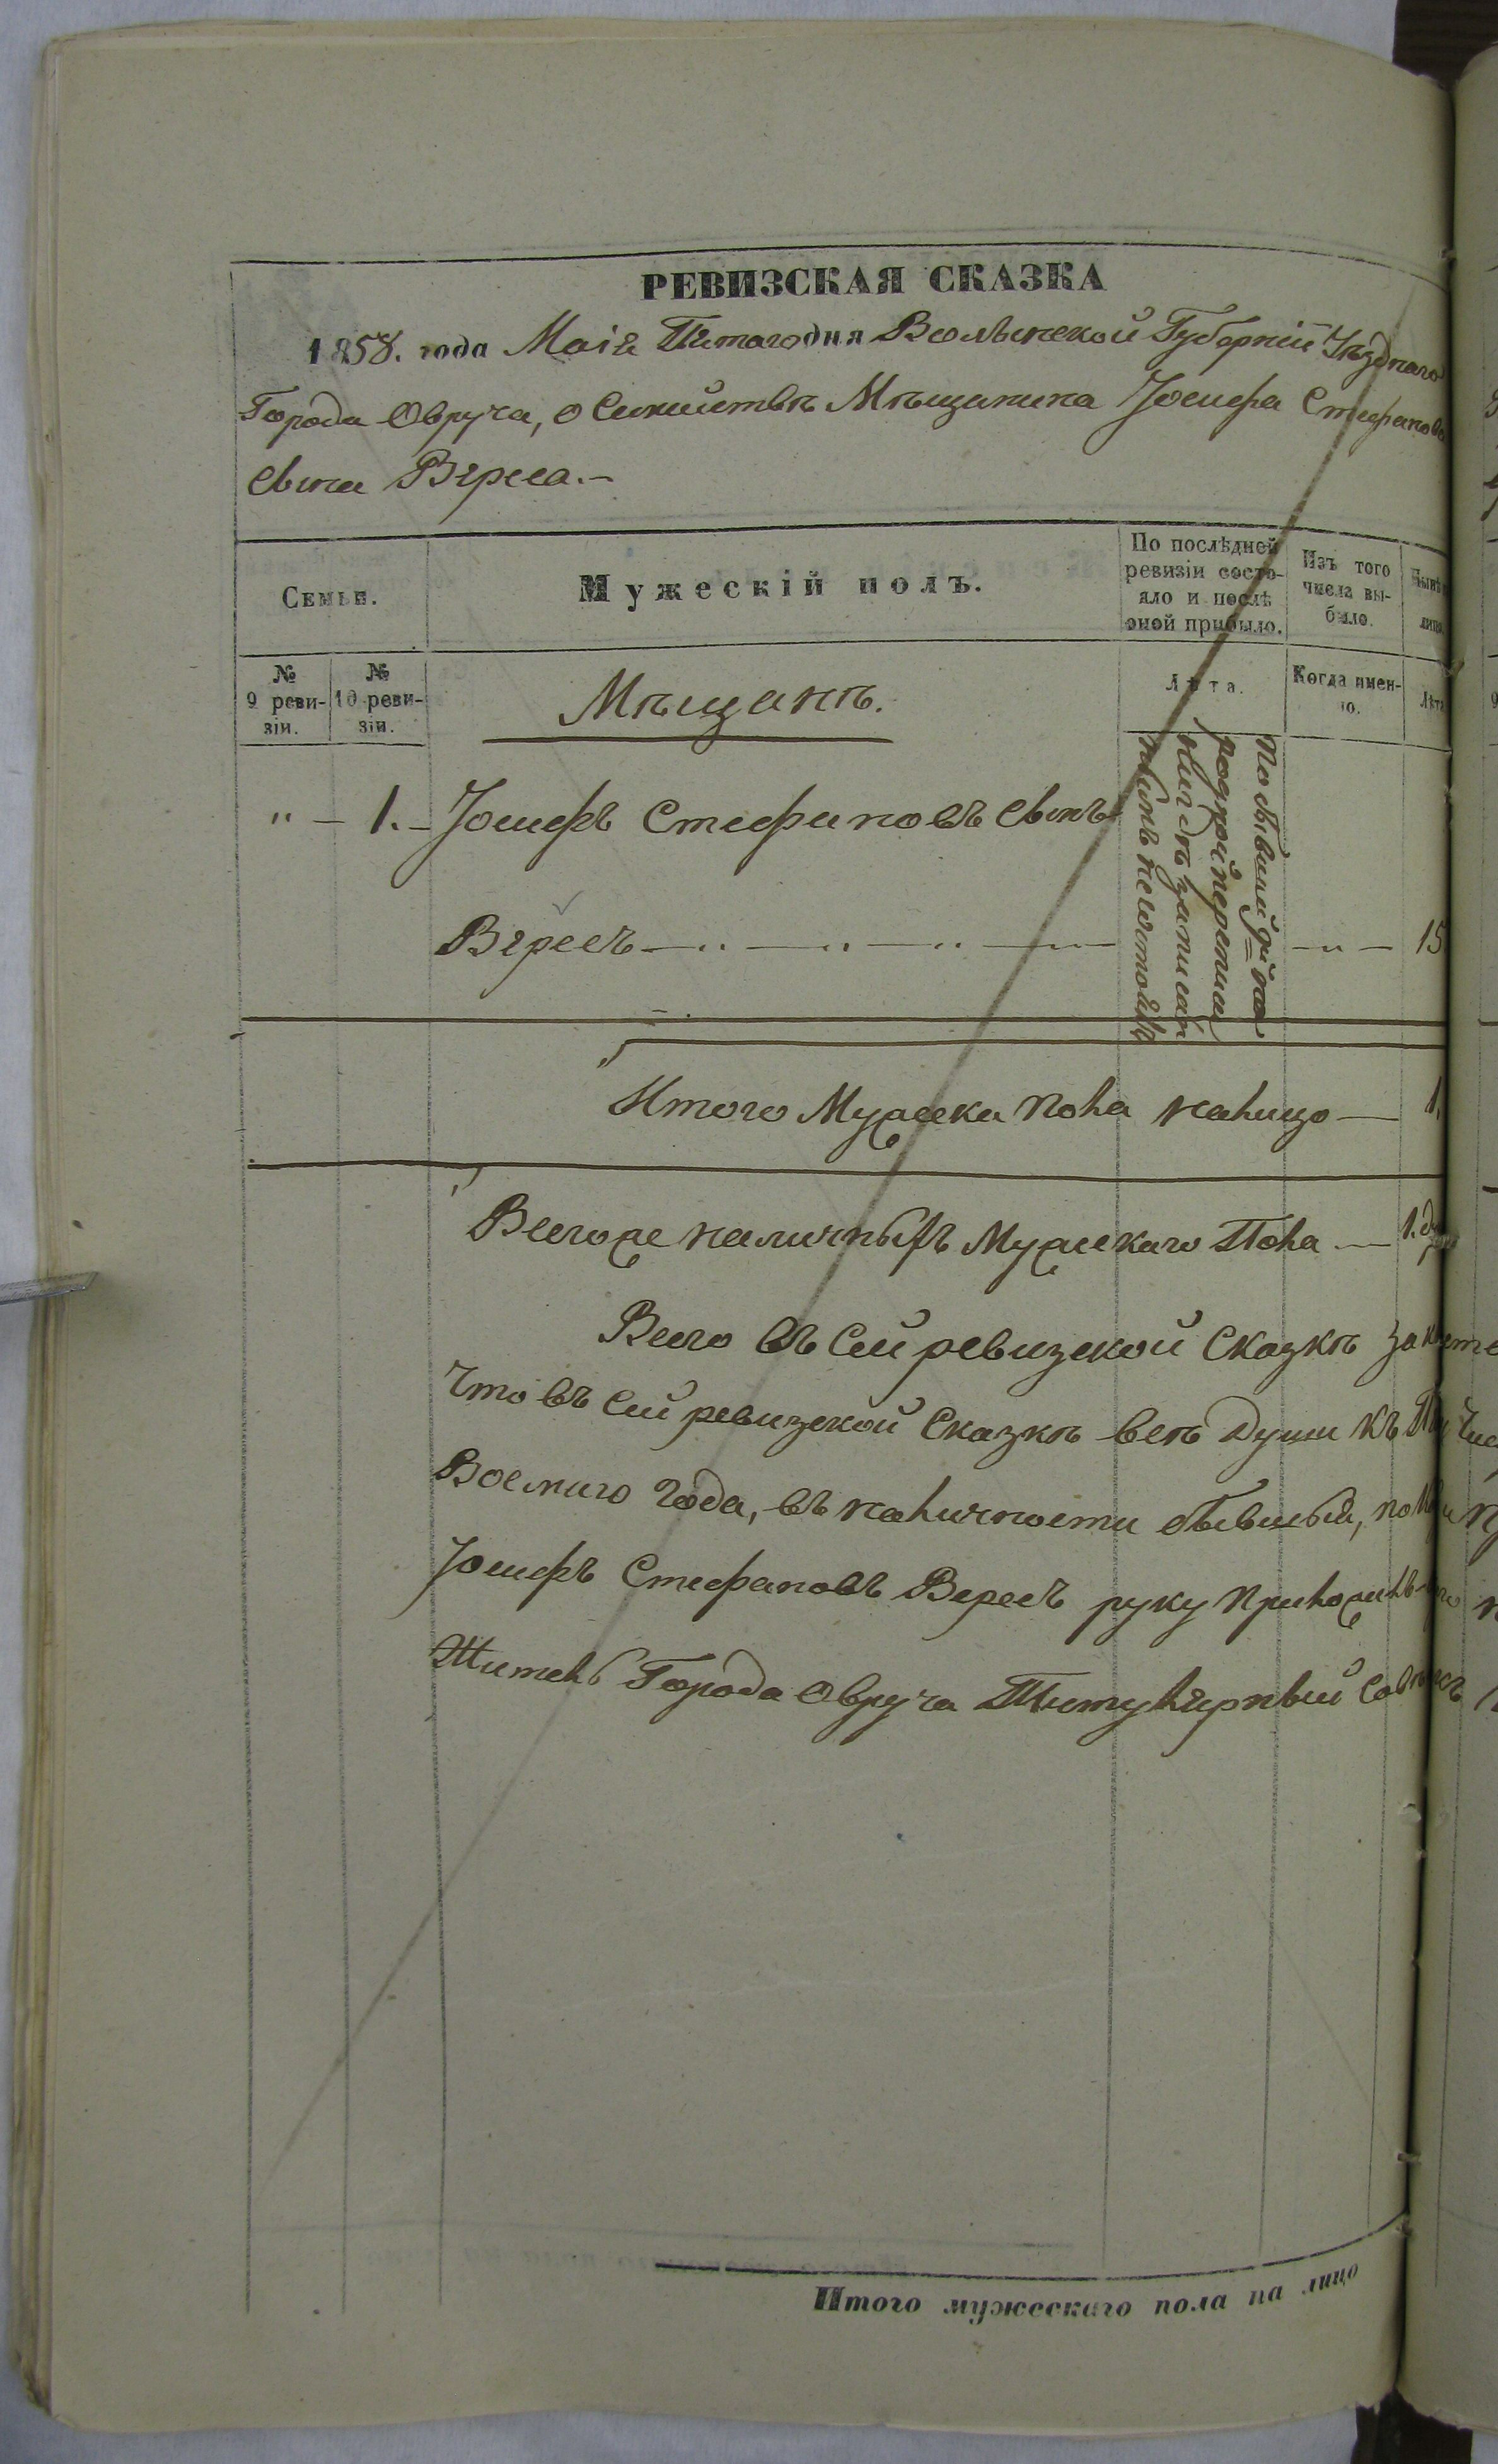 РЕВИЗСКАЯ СКАЗКА
1858. года Маія Пятаго дня Волынской Губерніи Уѣзднаго
Города Овруча, о Семействѣ Мѣщанина Іосифа Стефанова
Сына Вереса.-
Семьи.
Мужескій полъ.
По послѣдней
ревизіи состо-
яло и послѣ
оной прибыло.
Изъ того
числа вы-
было.
№
9 реви-
зіи.
№
10 реви-
зіи.
Мѣщанѣ.
Лѣта.
Когда имен-
но.
Лѣта
По бывшей 9й на
родной переписи
нигдѣ записан
нымъ не состоялъ
" - 1. - Іосифъ Стефановъ Сынъ
Вересъ - " - " - " - - " - 15
Итого Мужеска пола налицо - 1.
Всегоже наличныхъ Мужескаго Пола - 1.
Всего въ Сей ревизской Сказкѣ
Что въ Сей ревизской Сказкѣ всѣ души къ
Восмаго года, въ наличности бывшыя,
Іосифъ Стефановъ Вересъ руку приложилъ
Житель Города Овруча Титулярный
Итого мужескаго пола на лицо